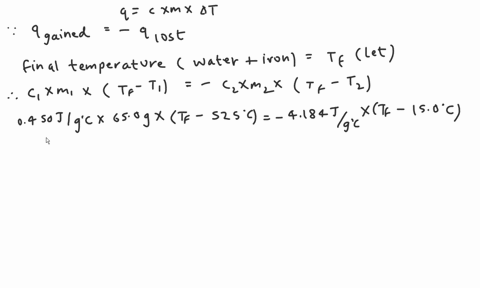 q = c x m x ΔT
∵ q gained = - q lost
Final temperature ( water + iron ) = TF (let)
∴ C1 x m1 x ( TF - T1 ) = - C2 x m2 x ( TF - T2 )
0.450 J/g°C x 65.0g x (TF - 525°C) = - 4.184 J/g°C x (TF - 15.0°C)